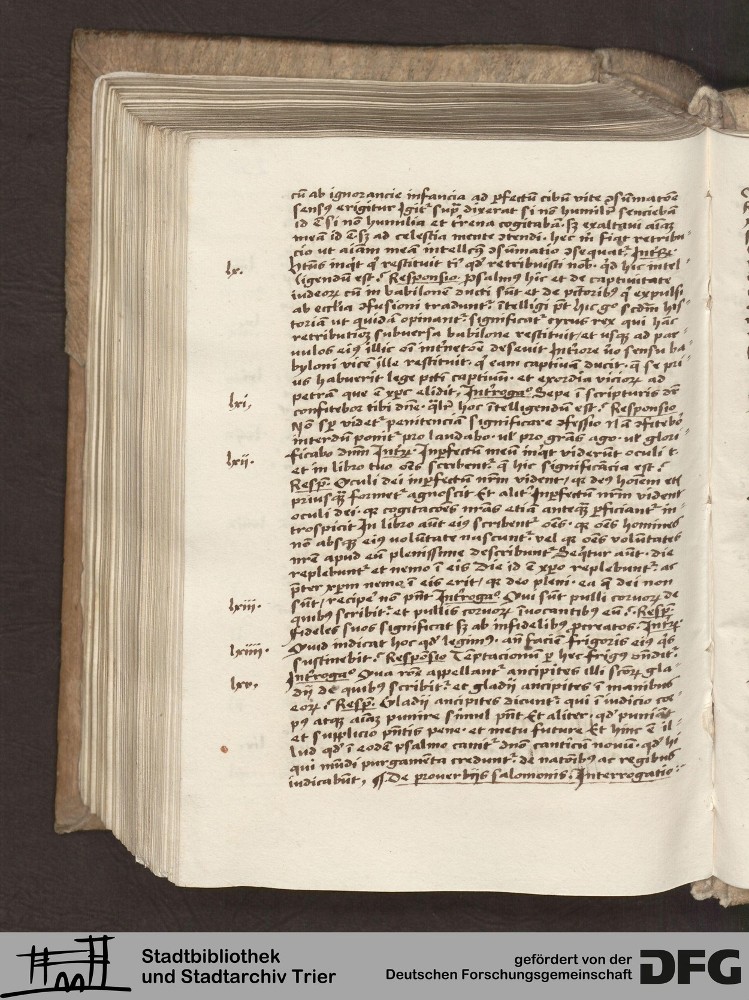 cū ab ignorancie infancia ad pfectū cibū vite ꝯsūmatōe
sensꝰ erigitur Igit᷑ supᷓ dixerat si nō humilit᷑ senciebā
id ē si nō humilia et t᷑rena cogitabā. sꝫ exaltaui aīaꝫ
meā id ē sꝫ ad celestia mente ꝯtendi. hec m̄ fiat retribu-
cio ut aīam meā intellcūs ꝯsūmatio ꝯsequat᷑. Int᷑rᷓ.
lx. īq̄t qͥ restituit tiᵇ qd̓ retribuisti nob̓. qd̓ hic intel-
ligendū est. Responsio psalmꝰ hic et de captiuitate
iudeoꝝ cū in babilonē ducti sūt et de expulsi
ab ecclīa ꝯfusioni tradunt᷑. ītelligi pt̄ hic scd̄m his-
toriā ut quidā opinant᷑. significat᷑ cyrus rex qui hāc
retributioꝫ subuersa babilone restituit. et usqꝫ ad par-
uulos eiꝰ illic deseuit Intiore ūo sensu ba-
byloni vicē ille restituit. qͥ eam captiuā ducit. qͥ se pri-
us habuerit lege pcti captiuū. et exordia vicioꝝ ad
petrā que ē xp̄c elidit. Introgaᵒ Sepe ī scripturis
lxi. confitebor tibi dn̄e. hoc ītelligendū est. Responsio
Nō sp̄ videt᷑ penitenciā significare ꝯfessio ꝯfitebor
interdū ponit᷑ pro laudabo. ul̓ pro grās ago. ul̓ glori-
lxii. ficabo dnm̄ Int᷑rᷓ. Inpfectū meū īquit viderūt oculi t.
et in libro tuo om̄s scribent᷑ qͣ hic significācia est.
Resp̄. Oculi dei inpfectū nr̄m vident, qꝛ deꝰ hoīem
priusqͣꝫ formet᷑ agnoscit Et alit᷑. Inpfectū nr̄m vident
oculi dei. qꝛ cogitacōes nr̄as etiā anteqͣꝫ pficiant᷑ in-
trospicit In libro aūt eiꝰ scribent᷑ oēs. qꝛ oēs homines
nō absqꝫ eiꝰ volūtate nascunt᷑. vel qꝛ oēs volūtates
nr̄e apud eū plenissime describunt᷑. Seqͥtur aūt. die
replebunt᷑ et nemo ī eis Die id ē xp̄o replebunt᷑. ac
pter xp̄m nemo ī eis erit, qꝛ deo pleni. ea qͣ dei non
sūt, recipe nō pn̄t Introgaᵒ Qui sūt pulli coruoꝝ de
lxiii. quibꝰ scribit᷑. et pullis coruoꝝ īuocantibꝰ eū. Resp̄.
Fideles suos significat sꝫ ab infidelibꝰ pcreatos. Int᷑rᷓ.
lxiiii. Quid indicat hoc qd̓ legimꝰ. an̄ faciē frigoris eiꝰ qͥs
sustinebit. Responsio Temptacionū p hec frigꝰ ōndit᷑.
lxv. Introgaᵒ Qua rōe appellant᷑ ancipites illi scōꝝ gla-
dii de quibꝰ scribit᷑. et gladii ancipites ī manibus
eoꝝ. Resp̄. Gladii ancipites dicunt᷑. qui ī iudicio cor-
pꝰ atqꝫ aīaꝫ punire simul pn̄t Et aliter. qd̓ puniāt
et supplicio pn̄tis pene. et metu future Et hinc ē il-
lud qd̓ ī eodē psalmo canit᷑ dn̄o canticū nouū. qd̓ hi
qui mūdi purgamēta credunt᷑. de natōibꝰ ac regibus
iudicabūt. ¶ De prouerbiis salomonis. Interrogatio.
Stadtbibliothek
und Stadtarchiv Trier
gefördert von der
Deutschen Forschungsgemeinschaft
DFG